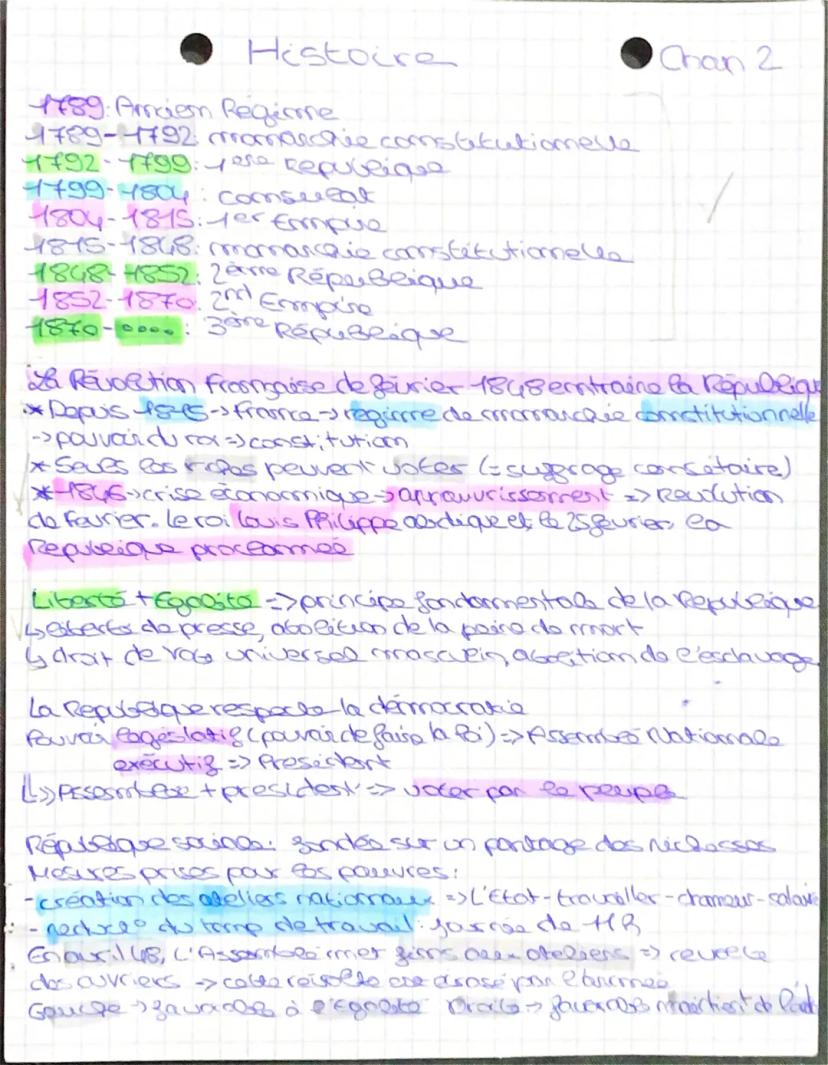 Histoire Chap 2
1789: Ancien Régime
1789-1792: monarchie constitutionnelle
1792-1799: 1ere republique
1799-1804: consulat
1804-1815: 1er Empire
1815-1848: monarchie constitutionnelle
1848-1852: 2ème République
1852-1870: 2nd Empire
1870-....: 3ème République
La Révolution Française de février 1848 entraine la République
* Depuis 1815 -> France -> régime de monarchie constitutionnelle
-> pouvoir du roi => constitution
* Seuls les riches peuvent voter (= suffrage censitaire)
* 1846 -> crise économique -> appauvrissement => Revolution
de fevrier. Le roi Louis Philippe abdique et, le 25 fevrier, la
République proclamée
Liberté + Egalité => principe fondamentale de la République
↳ liberté de presse, abolition de la peine de mort
↳ droit de vote universel masculin, abolition de l'esclavage
La République respecte la démocratie
Pouvoir législatif (pouvoir de faire la loi) => Assemblée Nationale
exécutif => President
↳> Assemblée + president => voter par le peuple
République sociale: fondée sur un partage des richesses
Mesures prises pour les pauvres:
- création des ateliers nationaux => L'Etat - travailler - chomeur - salaire
- du temp de travail: journée de 11h
En avril 48, L'Assemblée met fin aux ateliers => revolte
des ouvriers -> cette révolte par l'armée
Gauche -> favorable à l'égalité Droite -> favorable